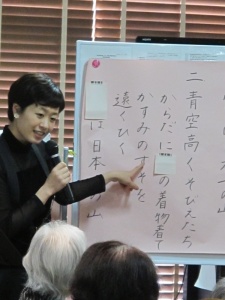 二 青空高くそびえたち
からだに の着物着て
かすみのすそを
遠くひく
は日本 山